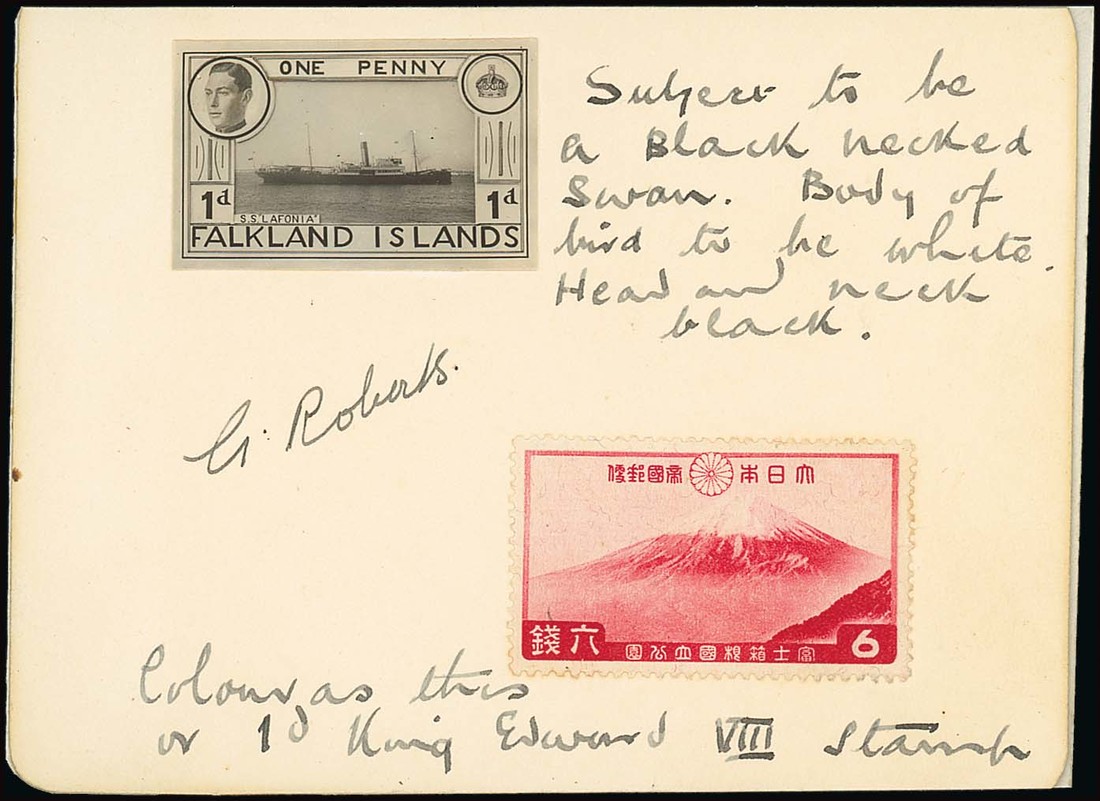 ONE PENNY
1d 1d
S.S 'LAFONIA'
FALKLAND ISLANDS
Subject to be
a Black necked
Swan. Body of
bird to be white.
Head and neck
black.
G. Roberts.
便郵國帝 本日大
錢六 園公立國根箱士富 6
Colour as this
or 1d King Edward VIII Stamp